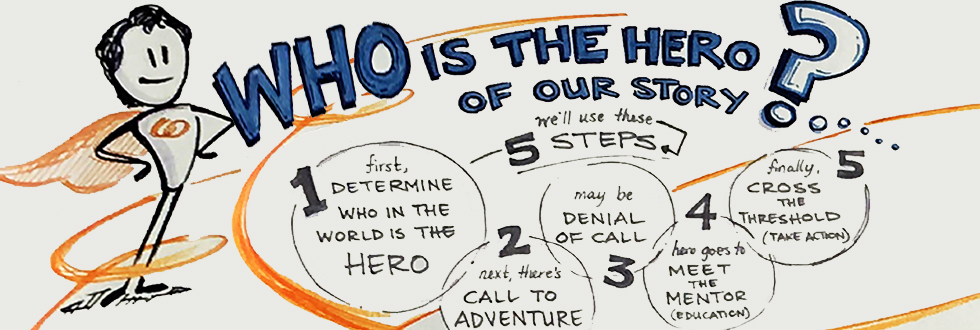 WHO IS THE HERO
OF OUR STORY?
we'll use these
5 STEPS
1
first,
DETERMINE
WHO IN THE
WORLD IS THE
HERO
2
next, there's
CALL TO
ADVENTURE
3
may be
DENIAL
OF CALL
4
hero goes to
MEET
THE
MENTOR
(EDUCATION)
5
finally,
CROSS
THE
THRESHOLD
(TAKE ACTION)